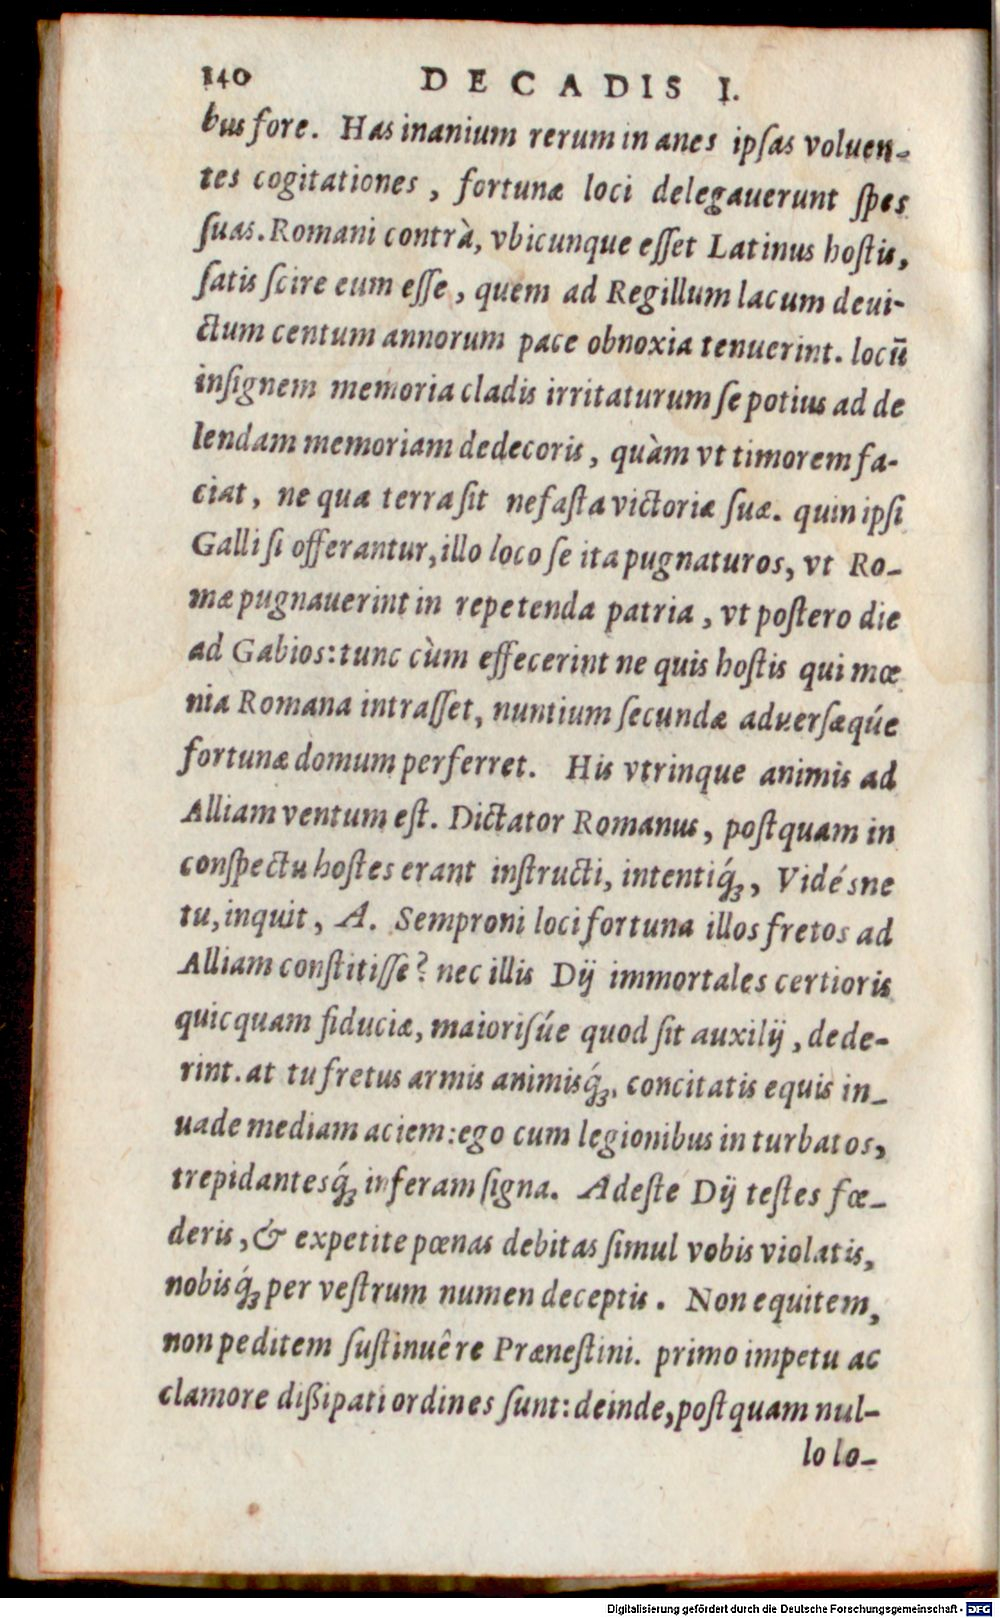 140 DECADIS I.
bus fore. Has inanium rerum inanes ipſas voluen-
tes cogitationes, fortunæ loci delegauerunt ſpes
ſuas. Romani contrà, vbicunque eſſet Latinus hoſtis,
ſatis ſcire eum eſſe, quem ad Regillum lacum deui-
ctum centum annorum pace obnoxia tenuerint. locū
inſignem memoria cladis irritaturum ſe potius ad de
lendam memoriam dedecoris, quàm vt timorem fa-
ciat, ne qua terra ſit nefaſta victoriæ ſuæ. quin ipſi
Galli ſi offerantur, illo loco ſe ita pugnaturos, vt Ro-
mæ pugnauerint in repetenda patria, vt poſtero die
ad Gabios: tunc cùm effecerint ne quis hoſtis qui mœ
nia Romana intraſſet, nuntium ſecundæ aduerſæqúe
fortunæ domum perferret. His vtrinque animis ad
Alliam ventum eſt. Dictator Romanus, poſtquam in
conſpectu hoſtes erant inſtructi, intentiq́ꝫ, Vidésne
tu, inquit, A. Semproni loci fortuna illos fretos ad
Alliam conſtitiſſe? nec illis Dij immortales certioris
quicquam fiduciæ, maioriſúe quod ſit auxilij, dede-
rint. at tu fretus armis animisq́ꝫ, concitatis equis in-
uade mediam aciem: ego cum legionibus in turbatos,
trepidantesq́ꝫ inferam ſigna. Adeſte Dij teſtes fœ-
deris, & expetite pœnas debitas ſimul vobis violatis,
nobisq́ꝫ per veſtrum numen deceptis. Non equitem,
non peditem ſuſtinuêre Præneſtini. primo impetu ac
clamore dißipati ordines ſunt: deinde, poſtquam nul-
lo lo-
Digitalisierung gefördert durch die Deutsche Forschungsgemeinschaft - DFG